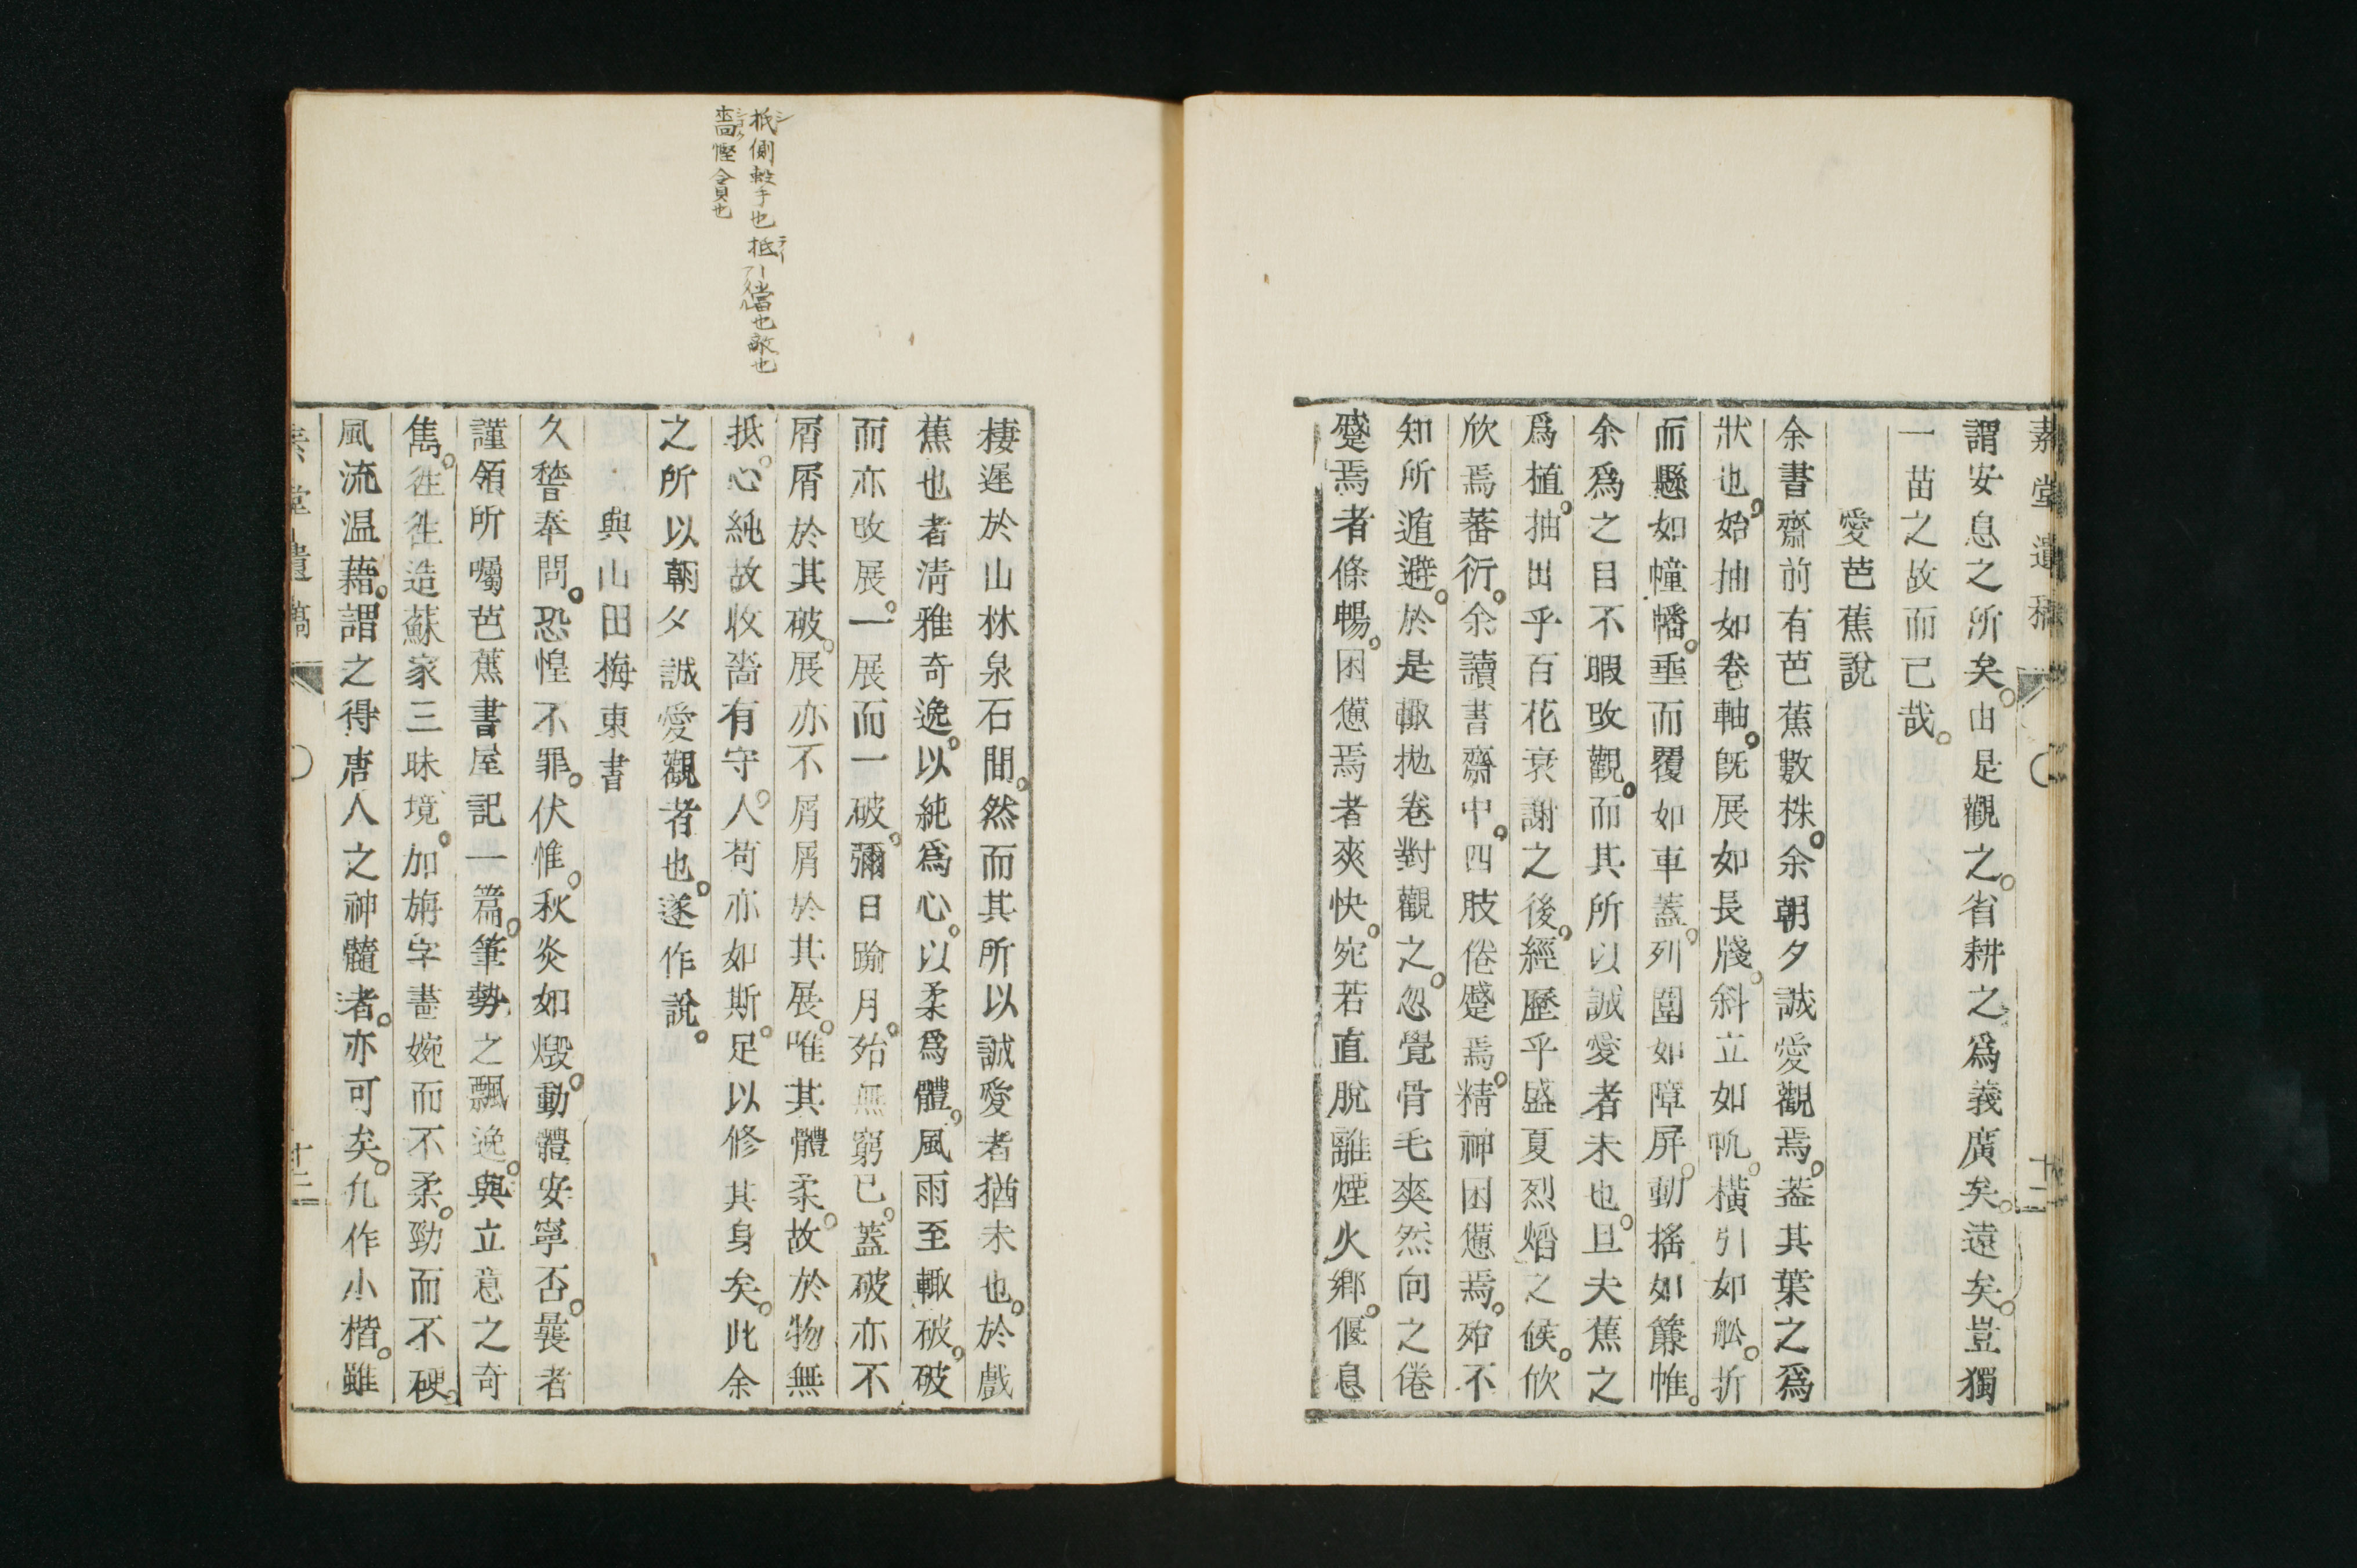 素堂遺稿 〇 十二
謂安息之所矣。由是觀之。省耕之爲義廣矣。遠矣。豈獨
一苗之故而已哉。
愛芭蕉說
余書齋前有芭蕉數株。余朝夕誠愛觀焉。葢其葉之爲
狀也。始抽如卷軸。旣展如長牋。斜立如帆。橫引如舩。折
而懸如幢幡。垂而覆如車蓋。列圍如障屏。動搖如簾帷。
余爲之目不暇攺觀。而其所以誠愛者未也。且夫蕉之
爲植。抽出乎百花衰謝之後。經歷乎盛夏烈熖之候。欣
欣焉蕃衍。余讀書齋中。四肢倦蹙焉。精神困憊焉。殆不
知所遁避。於是輙拋卷對觀之。忽覺骨毛爽然向之倦
蹙焉者條暢。困憊焉者爽快。宛若直脫離煙火鄉。偃息
棲遲於山林泉石間。然而其所以誠愛者猶未也。於戲
蕉也者淸雅奇逸。以純爲心。以柔爲體。風雨至輙破。破
而亦攺展。一展而一破。彌日踰月。殆無窮已。蓋破亦不
屑屑於其破。展亦不屑屑於其展。唯其體柔。故於物無
抵。心純故收嗇有守。人苟亦如斯。足以修其身矣。此余
之所以朝夕誠愛觀者也。遂作說。
與山田梅東書
久暌奉問。恐惶不罪。伏惟。秋炎如燬。動體安寧否。曩者
謹領所囑芭蕉書屋記一篇。筆勢之飄逸。與立意之奇
雋。徃徃造蘇家三昧境。加旃字畫婉而不柔。勁而不硬。
風流温藉。謂之得唐人之神髓者。亦可矣。凢作小楷。雖
素堂遺稿 〇 十二
抵側擊手也 抵當也敵也
嗇慳貪也